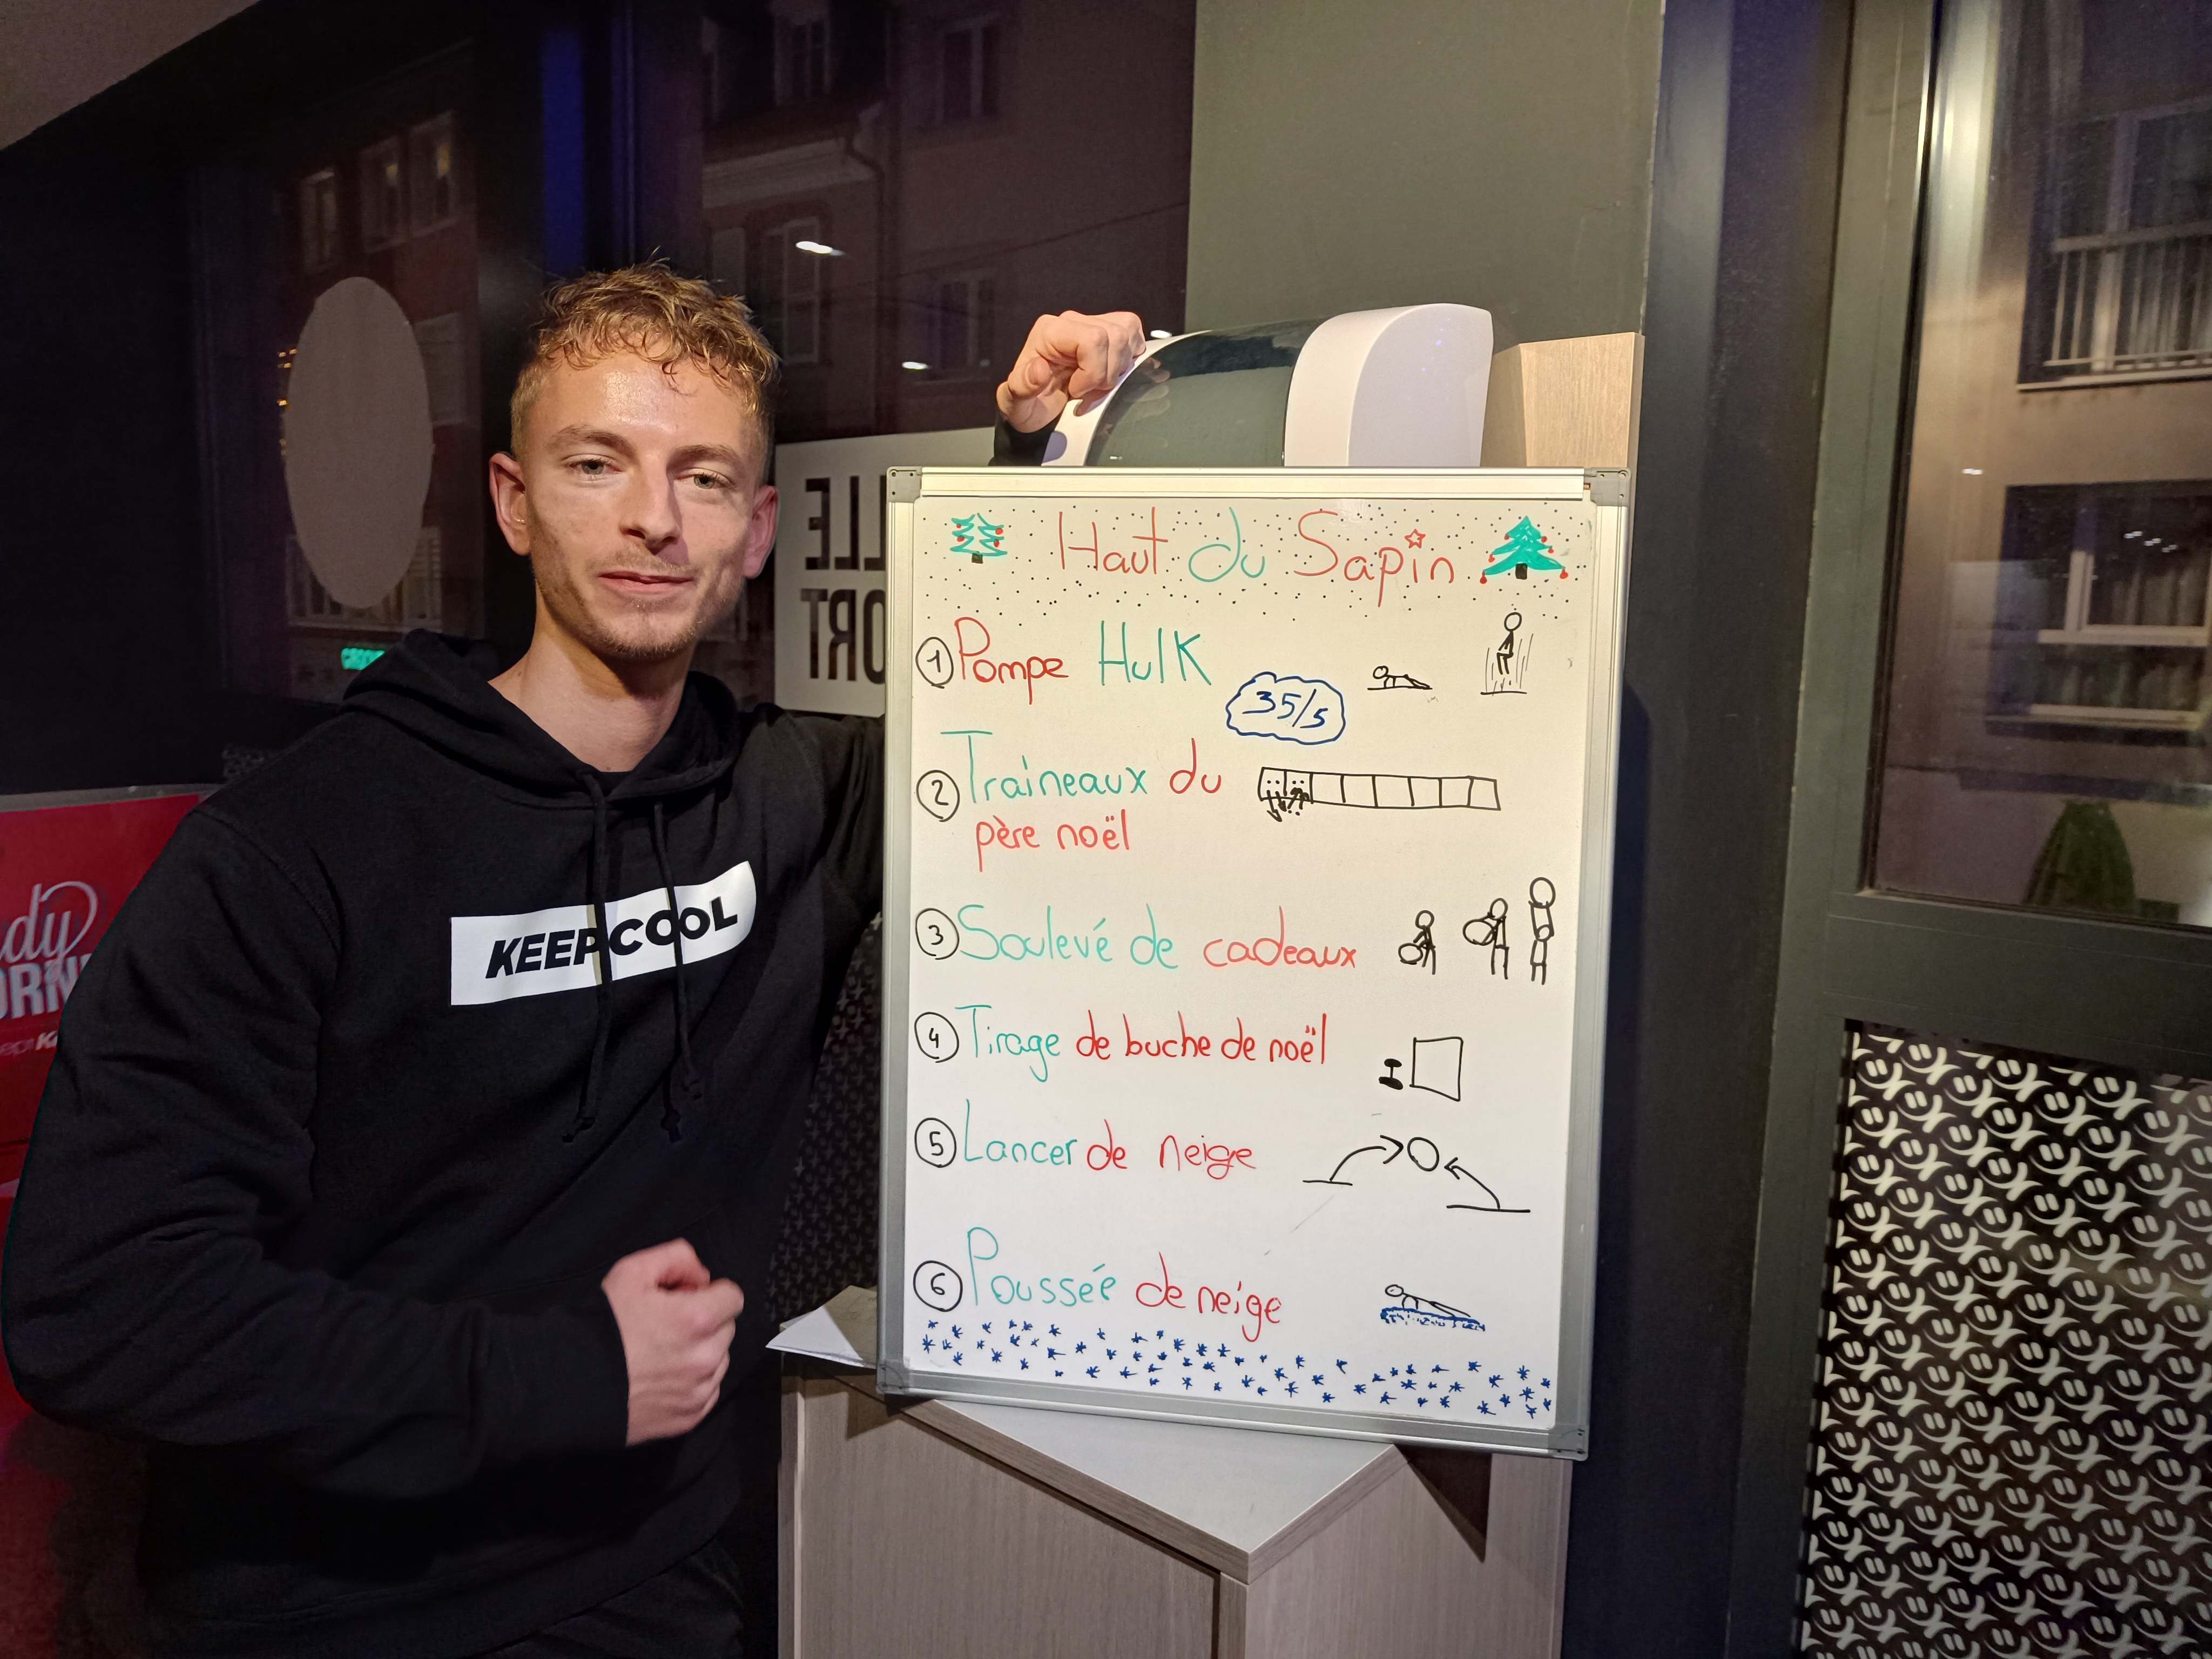 Haut du Sapin
1 Pompe Hulk
35/5
2 Traineaux du
père noël
3 Soulevé de cadeaux
4 Tirage de buche de noël
5 Lancer de neige
6 Poussée de neige
KEEPCOOL
LLE
ORT